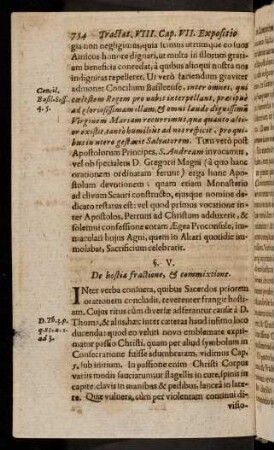 734 Tractat. VIII. Cap. VII. Expositio
gia non negligimus, quia scimus utrumque eo suos
Aulicos honore dignari, ut multa in illorum gratiam
beneficia concedat, à quibus alioqui nostra nos
indignitas repelleret. Ut verò faciendum graviter
admonet Concilium Basileense, inter omnes, qui
cælestem Regem pro nobis interpellant, præcipuè
ad gloriosissimam illam, & omni laude dignissimā
Virginem Mariam recurrimus, quæ quanto altior
existit, tantò humilius ad nos respicit, pro quibus
in utero gestavit Salvatorem. Tum verò post
Apostolorum Principes, S. Andream invocamus,
vel ob specialem D. Gregorii Magni (à quo hanc
orationem ordinatam ferunt) erga hunc Apostolum
devotionem: quam etiam Monasterio
ad clivum Scauri constructo, ejusque nomine dedicato
testatus est: vel quod primus vocatione inter
Apostolos, Petrum ad Christum adduxerit, &
solemni confessione coram Ægea Proconsule, immaculati
hujus Agni, quem in Altari quotidie immolabat,
Sacrificium celebrarit.
§. V.
De hostiæ fractione, & commixtione.
INter verba conjuncta, quibus Sacerdos priorem
orationem concludit, reverenter frangit hostiam.
Cujus ritus cùm diversæ adferantur causæ à D.
Thoma, & aliis, hæc inter cæteras haud infimo loco
ducenda: quod eo veluti novo emblemate exprimatur
passio Christi, quam per aliud symbolum in
Consecratione fuisse adumbratam, vidimus Cap.
5. sub initium. In passione enim Christi Corpus
variis modis sauciatum est flagellis in cute, spinis in
capite, clavis in manibus & pedibus, lanceâ in latere.
Quæ vulnera, cùm per violentam continui divisio-
Concil.
Basileens.
43.
D. Th. 3. p.
q. 83. a. 5.
ad 3.